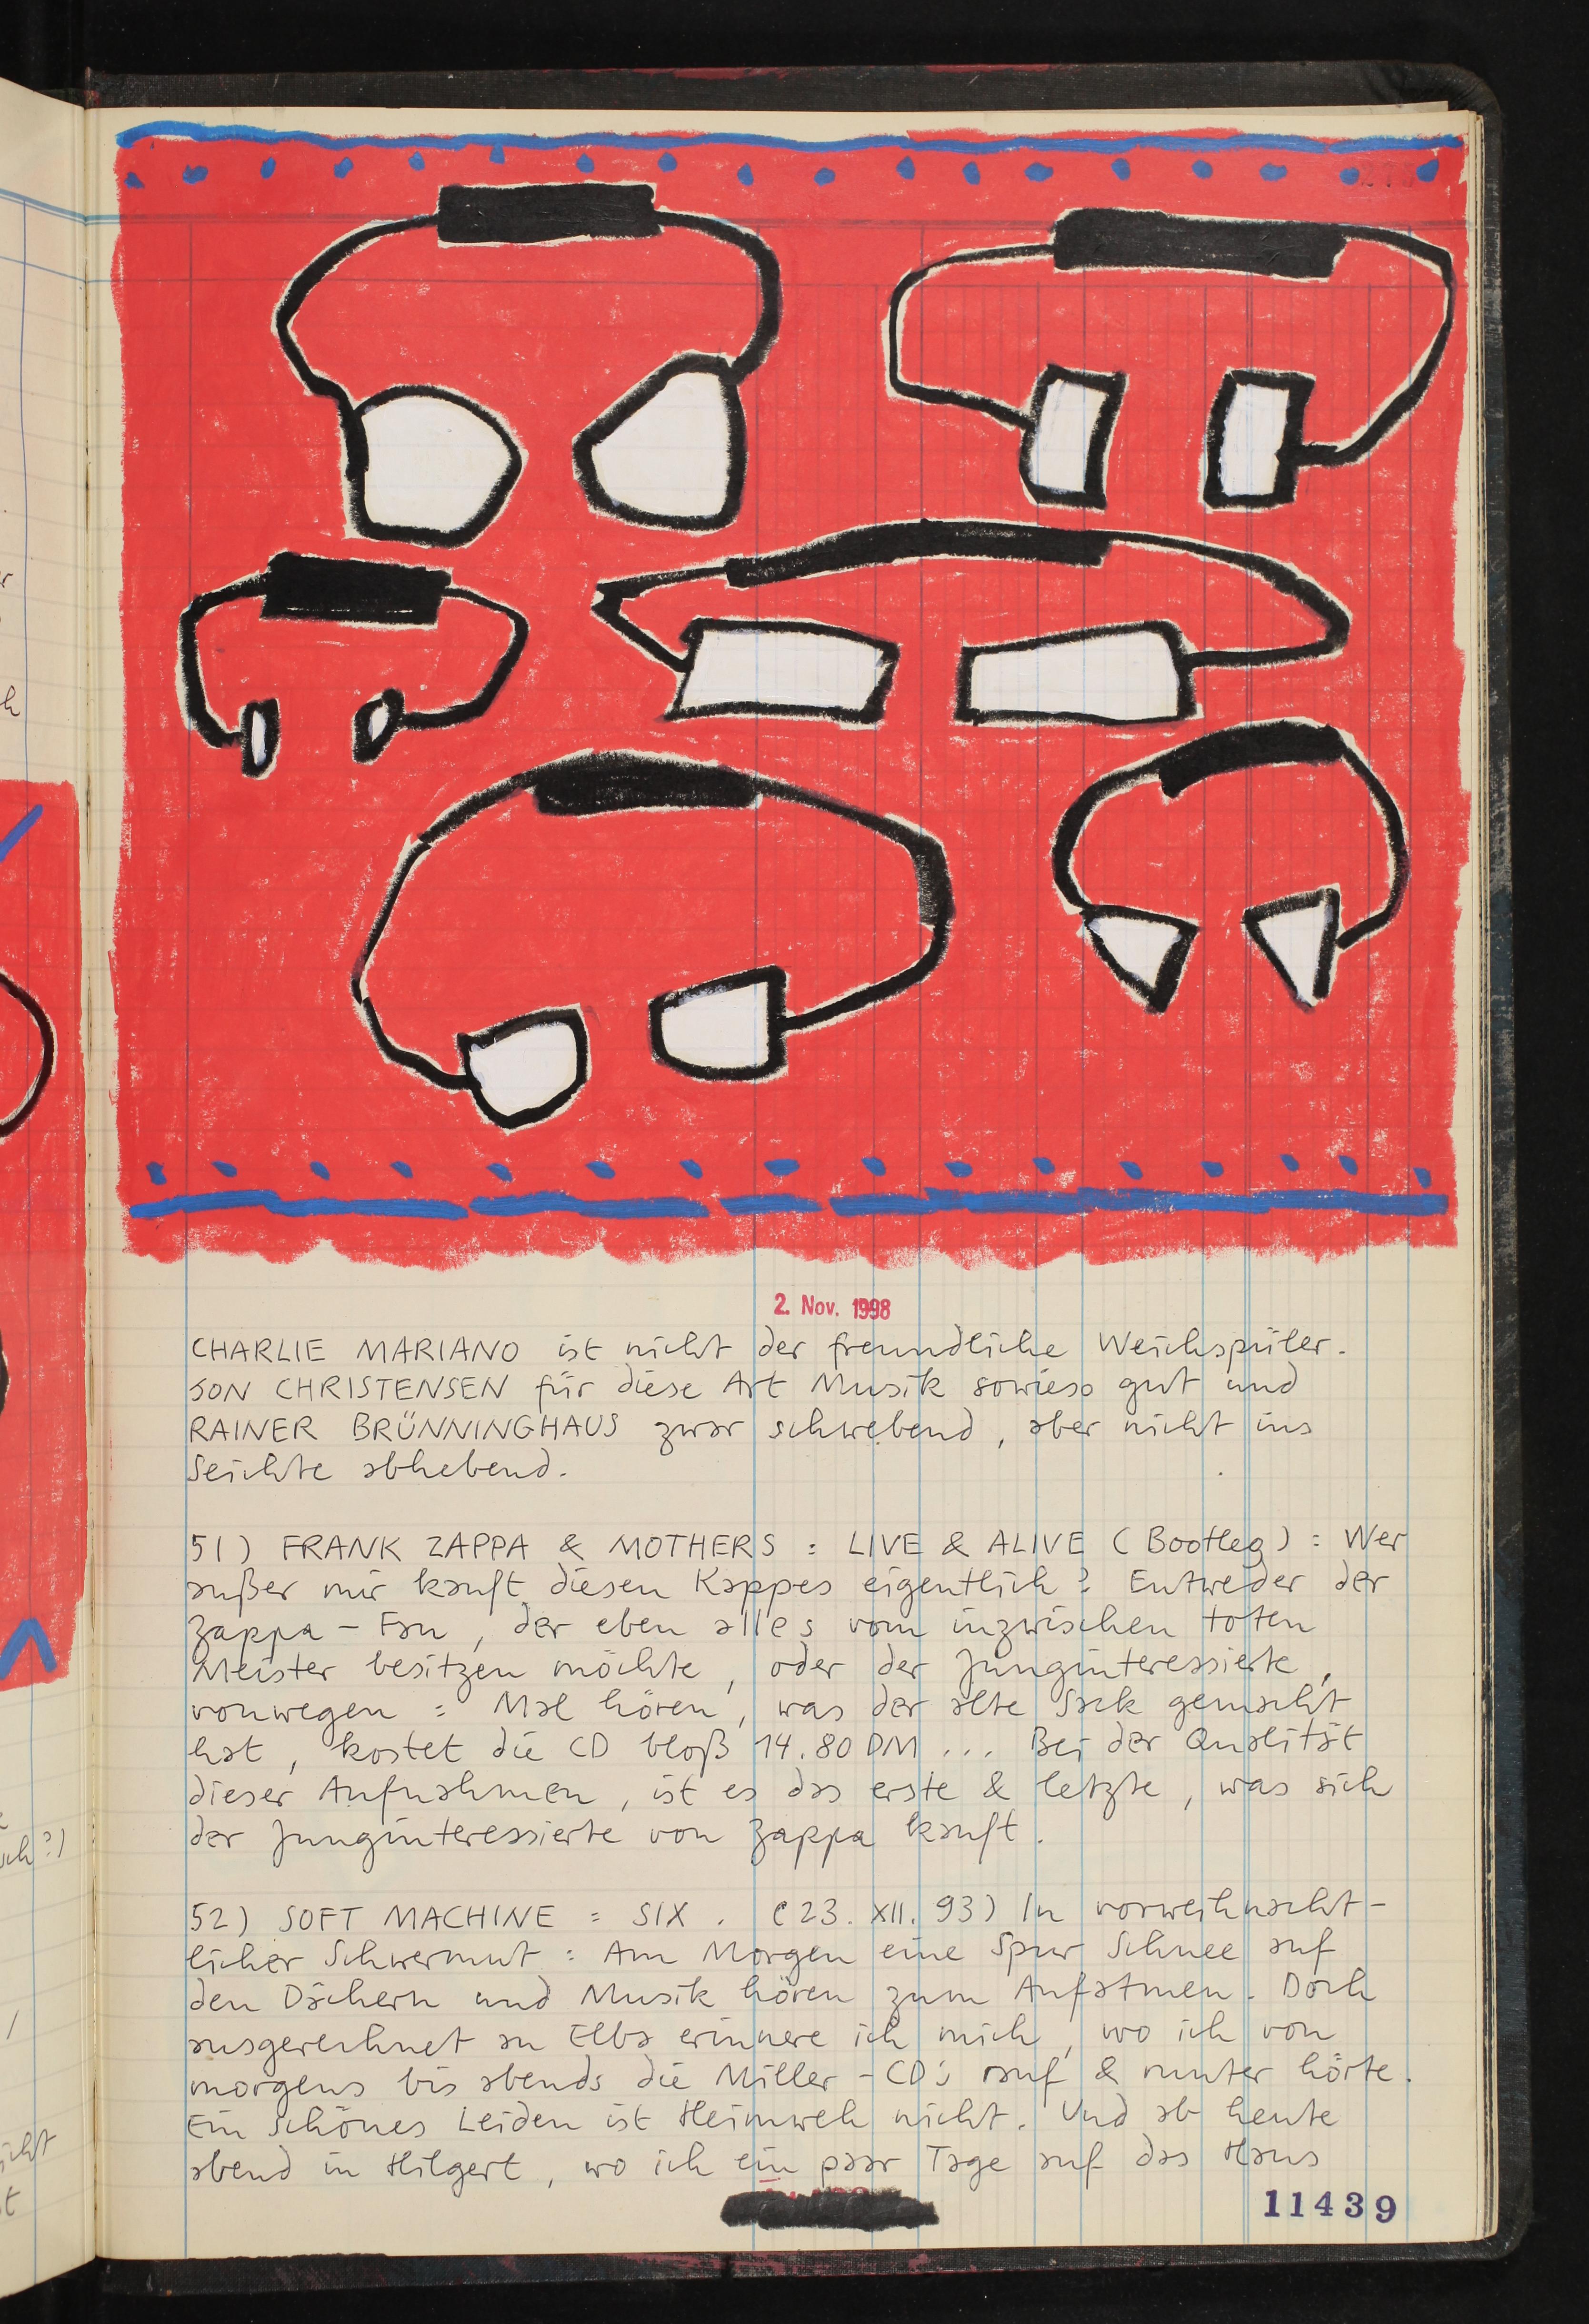 2. Nov. 1998
CHARLIE MARIANO ist nicht der freundliche Weichspüler.
JON CHRISTENSEN für diese Art Musik sowieso gut und
RAINER BRÜNNINGHAUS zwar schwebend, aber nicht ins
Seichte abhebend.
51) FRANK ZAPPA & MOTHERS : LIVE & ALIVE (Bootleg) : Wer
außer mir kauft diesen Kappes eigentlich? Entweder der
Zappa-Fan, der eben alles vom inzwischen toten
Meister besitzen möchte, oder der Junginteressierte,
vonwegen : Mal hören, was der alte Sack gemacht
hat, kostet die CD bloß 14.80 DM ... Bei der Qualität
dieser Aufnahmen, ist es das erste & letzte, was sich
der Junginteressierte von Zappa kauft.
52) SOFT MACHINE : SIX . (23. XII. 93) In vorweihnacht-
licher Schwermut : Am Morgen eine Spur Schnee auf
den Dächern und Musik hören zum Aufatmen. Doch
ausgerechnet an Elba erinnere ich mich, wo ich von
morgens bis abends die Miller-CD's rauf & runter hörte.
Ein schönes Leiden ist Heimweh nicht. Und ab heute
abend in Hilgert, wo ich ein paar Tage auf das Haus
11439
r
h
uch?)
/
icht
st